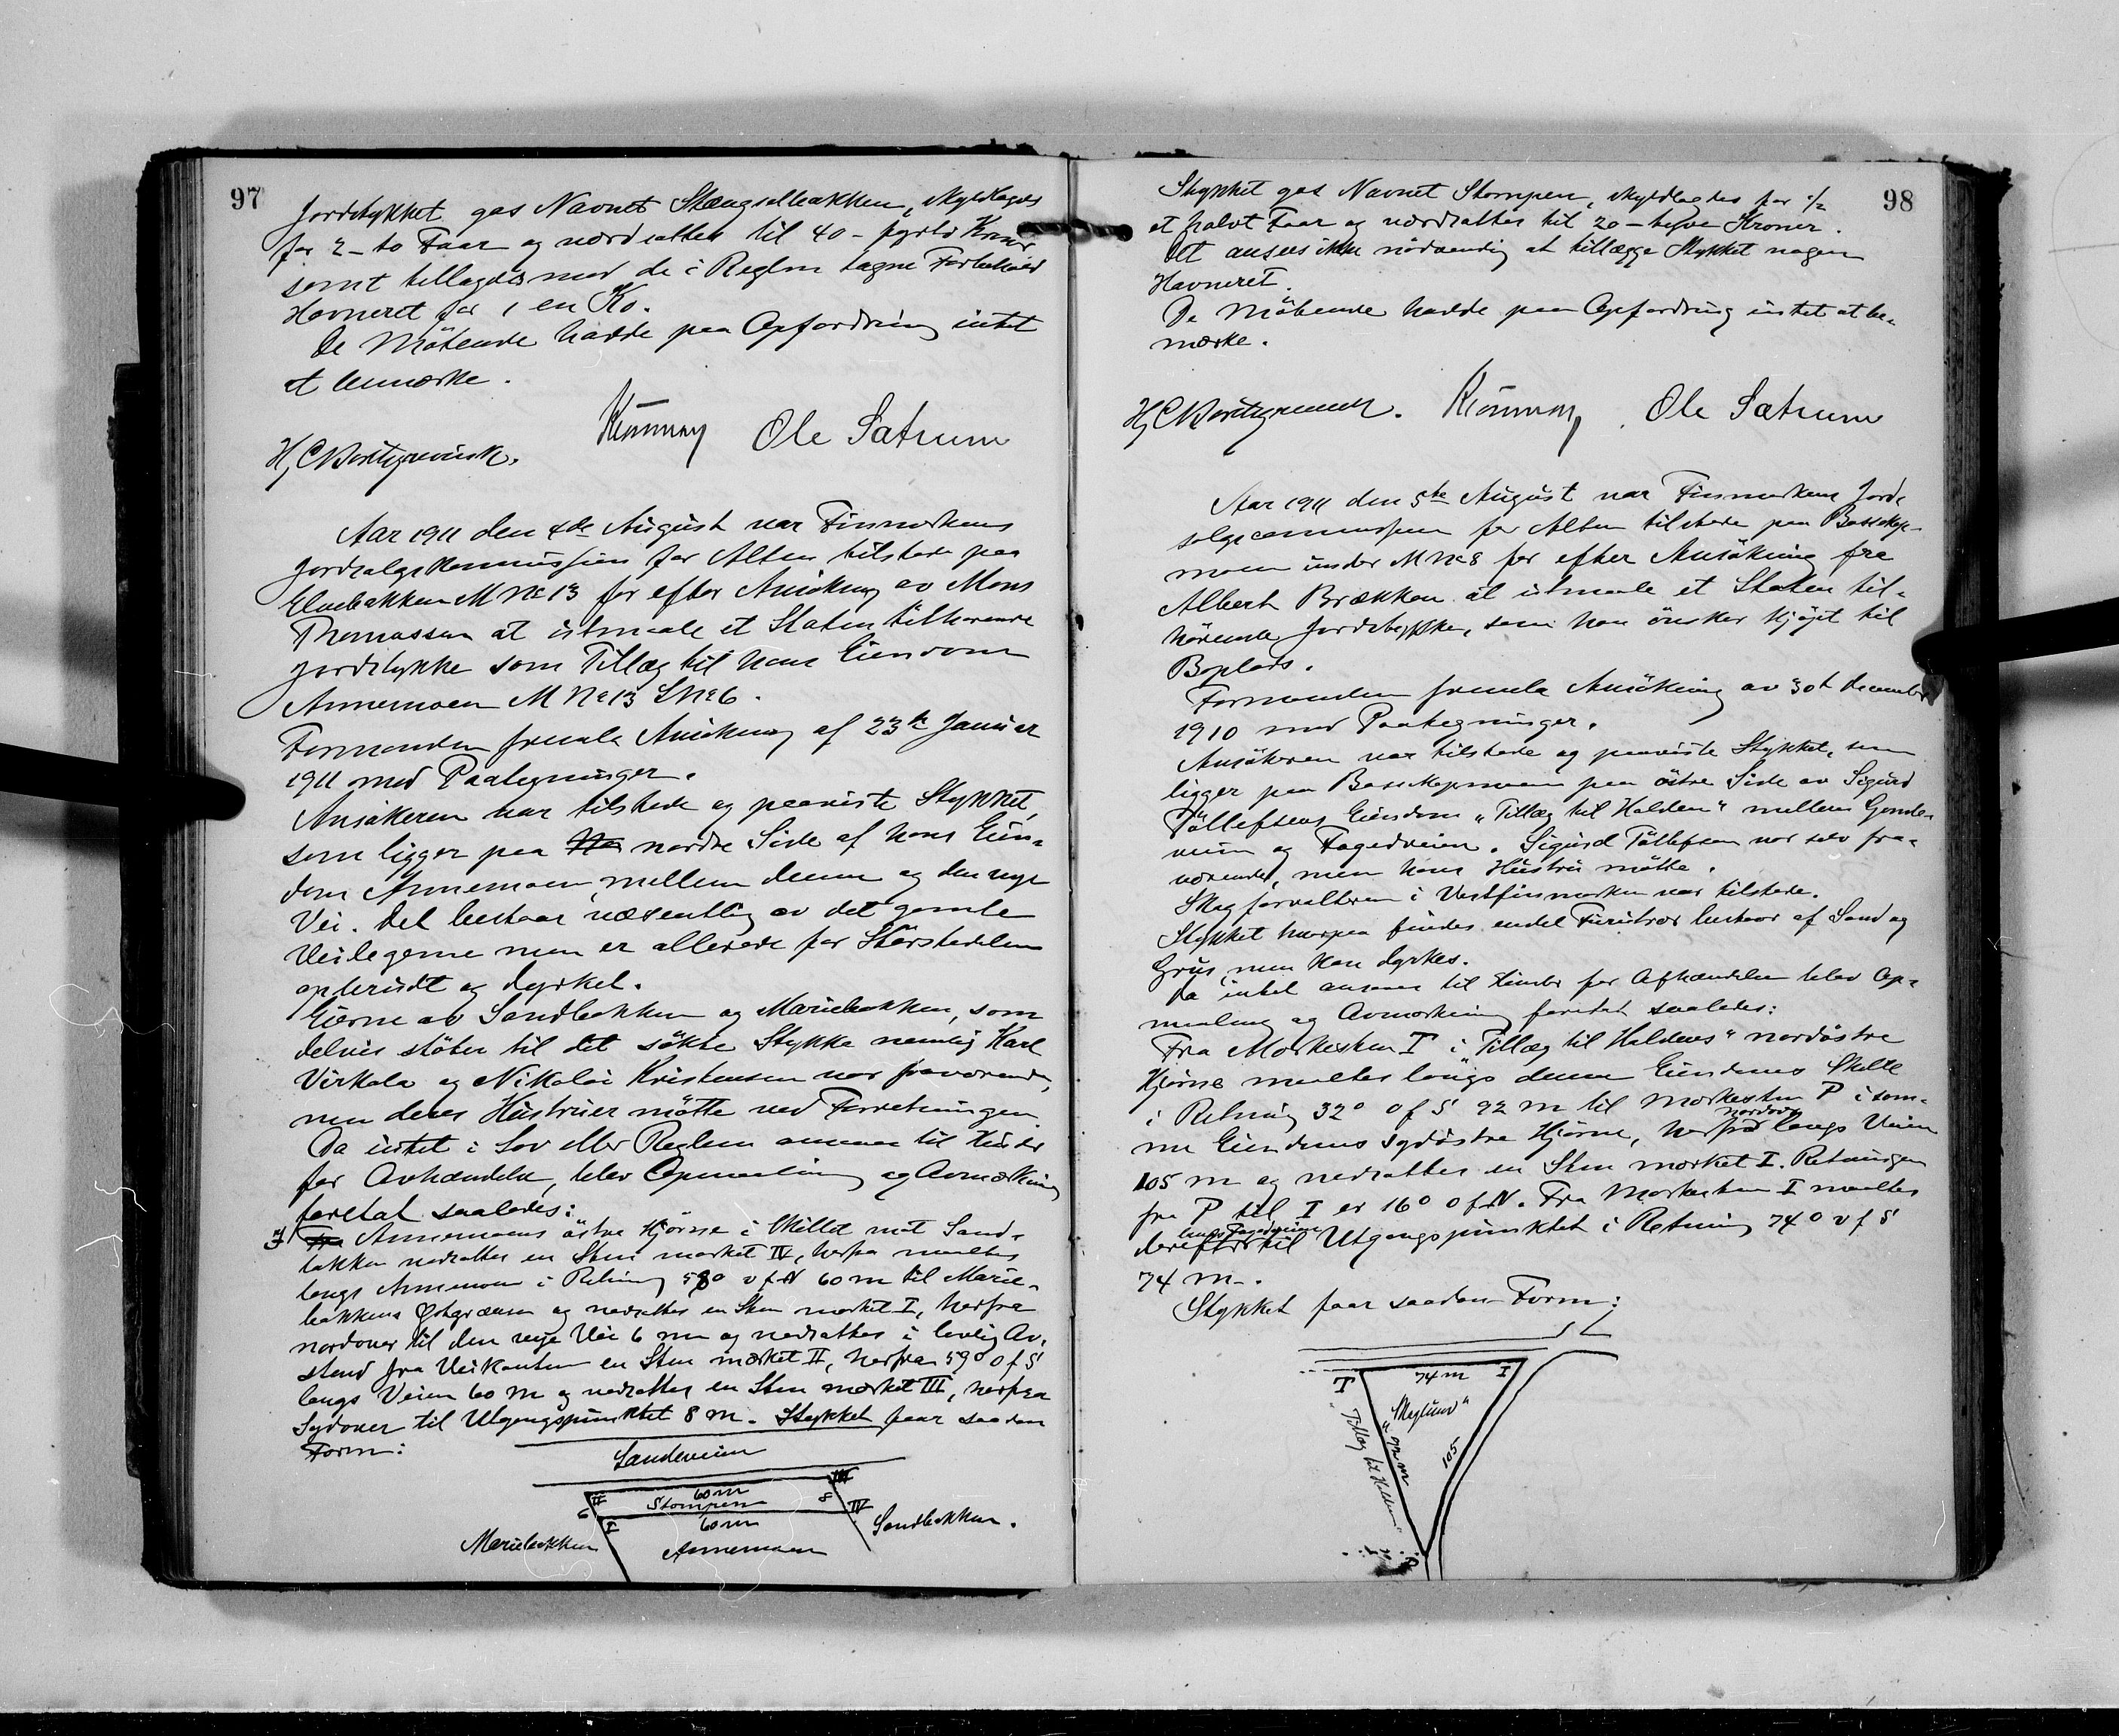 97
Jordstykket gas Navnet Stængselbakken, skyldlagdes
for 2 - to Faar og værdsattes til 40 - fyrti Kroner
samt tillagdes med de i Reglem. tagne Forbehold
Havneret for 1 en Ko.
De Mötende hadde paa Opfordring intet
at bemærke.
Ole Sætrum
Aar 1911 den 4de August var Finmarkens
Jordsalgskommission for Alten tilstede paa
Elvebakken M No 13 for efter Ansökning av Mons
Thomassen at utmaale et Staten tilhörende
Jordstykke som Tillæg til hans Eiendom
Annemoen M No 13 S No 6.
Formanden fremla Ansökning af 23de Januar
1911 med Paategninger.
Ansökeren var tilstede og paaviste Stykket,
som ligger paa nordre Side af hans Eien-
dom Annemoen, mellem denne og den nye
Vei. Det bestaar væsentlig av det gamle
Veilegeme men er allerede for Störstedelen
opbrudt og dyrket.
Eierne av Sandbakken og Mariebakken, som
delvis stöter til det sökte Stykke nemlig Karl
Virkola og Nikolai Kristensen var fraværende,
men deres Hustruer mötte ved Forretningen.
Da intet i Lov eller Reglem. ansaaes til Hinder
for Avhændelse, blev Opmaaling og Avmærkning
foretat saaledes:
I Annemoens östre Hjörne i Skillet mot Sand-
bakken nedsattes en Sten mærket IV, herfra maaltes
langs Annemoen i Retning 58° v f N 60 m til Marie-
bakkens Östgrænse og nedsattes en Sten mærket I, herfra
nordover til den nye Vei 6 m og nedsattes i lovlig Av-
stand fra Veikanten en Sten mærket II, herfra 59° o f S
langs Veien 60 m og nedsattes en Sten mærket III, herfra
sydover til Utgangspunktet 8 m. Stykket faar saadan
Form:
Landeveien
II 60 m III
6 Stompen 8
I 60 m IV
Mariebakken Annemoen Sandbakken.
98
Stykket gas Navnet Stompen, skyldlagdes for 1/2
et halvt Faar og værdsattes til 20 - tyve Kroner.
Det ansees ikke nödvendig at tillægge Stykket nogen
Havneret.
De Mötende hadde paa Opfordring intet at be-
mærke.
Ole Sætrum
Aar 1911 den 5te August var Finmarkens Jord-
salgscommission for Alten tilstede paa Bossekop-
moen under M No 8 for efter Ansökning fra
Albert Brækken at utmaale et Staten til-
hörende Jordstykke, som han önsker kjöpt til
Boplads.
Formanden fremla Ansökning av 30t December
1910 med Paategninger.
Ansökeren var tilstede og paaviste Stykket, som
ligger paa Bossekopmoen paa östre Side av Sigurd
Töllefsens Eiendom "Tillæg til Halden" mellem Gamle-
veien og Fogedveien. Sigurd Töllefsen var selv fra-
værende, men hans Hustru mötte.
Skogforvalteren i Vestfinmarken var tilstede.
Stykket hvorpaa findes endel Furutrær bestaar af Sand og
Grus, men kan dyrkes.
Da intet ansaaes til Hinder for Afhændelse blev Op-
maaling og Avmærkning foretat saaledes:
Fra Merkesten T i "Tillæg til Haldens" nordöstre
Hjörne maaltes langs denne Eiendoms Skille
i Retning 32° o f S 92 m til Merkesten P i sam-
nordover
me Eiendoms sydöstre Hjörne, herfra langs Veien
105 m og nedsattes en Sten mærket I. Retningen
fra P til I er 16° o f N. Fra Merkesten I maaltes
langs Fogedveien
derefter til Utgangspunktet i Retning 74° v f S
74 m.
Stykket faar saadan Form:
T 74 m I
"Skoglund"
92 m
105
"Tillæg til Halden"
P